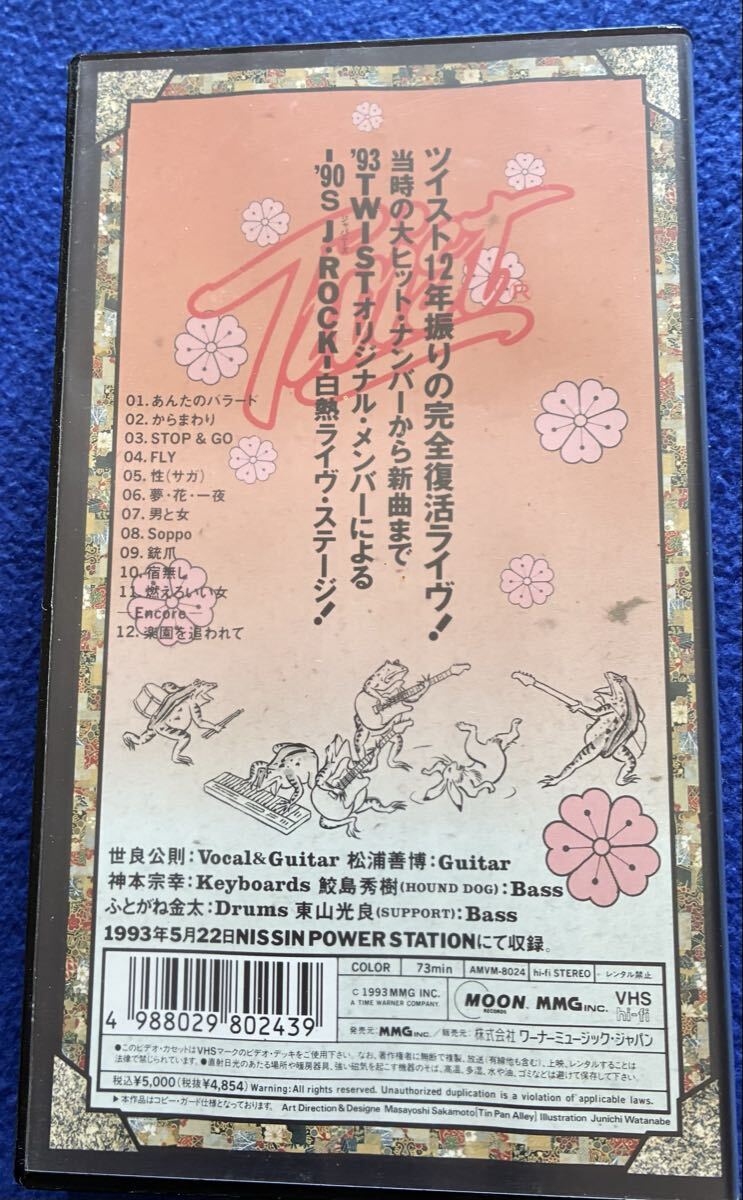 ツイスト12年振りの完全復活ライヴ!
当時の大ヒット・ナンバーから新曲まで
'93TWISTオリジナル・メンバーによる
-'90S J・ROCK-白熱ライヴ・ステージ!
Twist
R
01.あんたのバラード
02.からまわり
03.STOP & GO
04.FLY
05.性(サガ)
06.夢・花・一夜
07.男と女
08.Soppo
09.銃爪
10.宿無し
11.燃えろいい女
—Encore—
12.楽園を追われて
世良公則:Vocal&Guitar 松浦善博:Guitar
神本宗幸:Keyboards 鮫島秀樹(HOUND DOG):Bass
ふとがね金太:Drums 東山光良(SUPPORT):Bass
1993年5月22日NISSIN POWER STATIONにて収録。
4 988029 802439
COLOR 73min AMVM-8024 hi-fi STEREO レンタル禁止
© 1993 MMG INC.
A TIME WARNER COMPANY.
MOON RECORDS MMG INC. VHS hi-fi
発売元:MMG INC. 販売元:株式会社 ワーナーミュージック・ジャパン
●このビデオ・カセットはVHSマークのビデオ・デッキをご使用下さい。なお、著作権者に無断で複製、放送(有線他も含む)、上映、レンタルすることは
法律で禁じられています。●直射日光のあたる場所や暖房器具、強い磁気を起こす機器のそば、高温、多湿、水や油、ゴミなどは避けて保存して下さい。
税込¥5,000(税抜¥4,854) Warning:All rights reserved. Unauthorized duplication is a violation of applicable laws.
▶本作品はコピー・ガード仕様となっております。 Art Direction & Designe Masayoshi Sakamoto[Tin Pan Alley] Illustration Junichi Watanabe